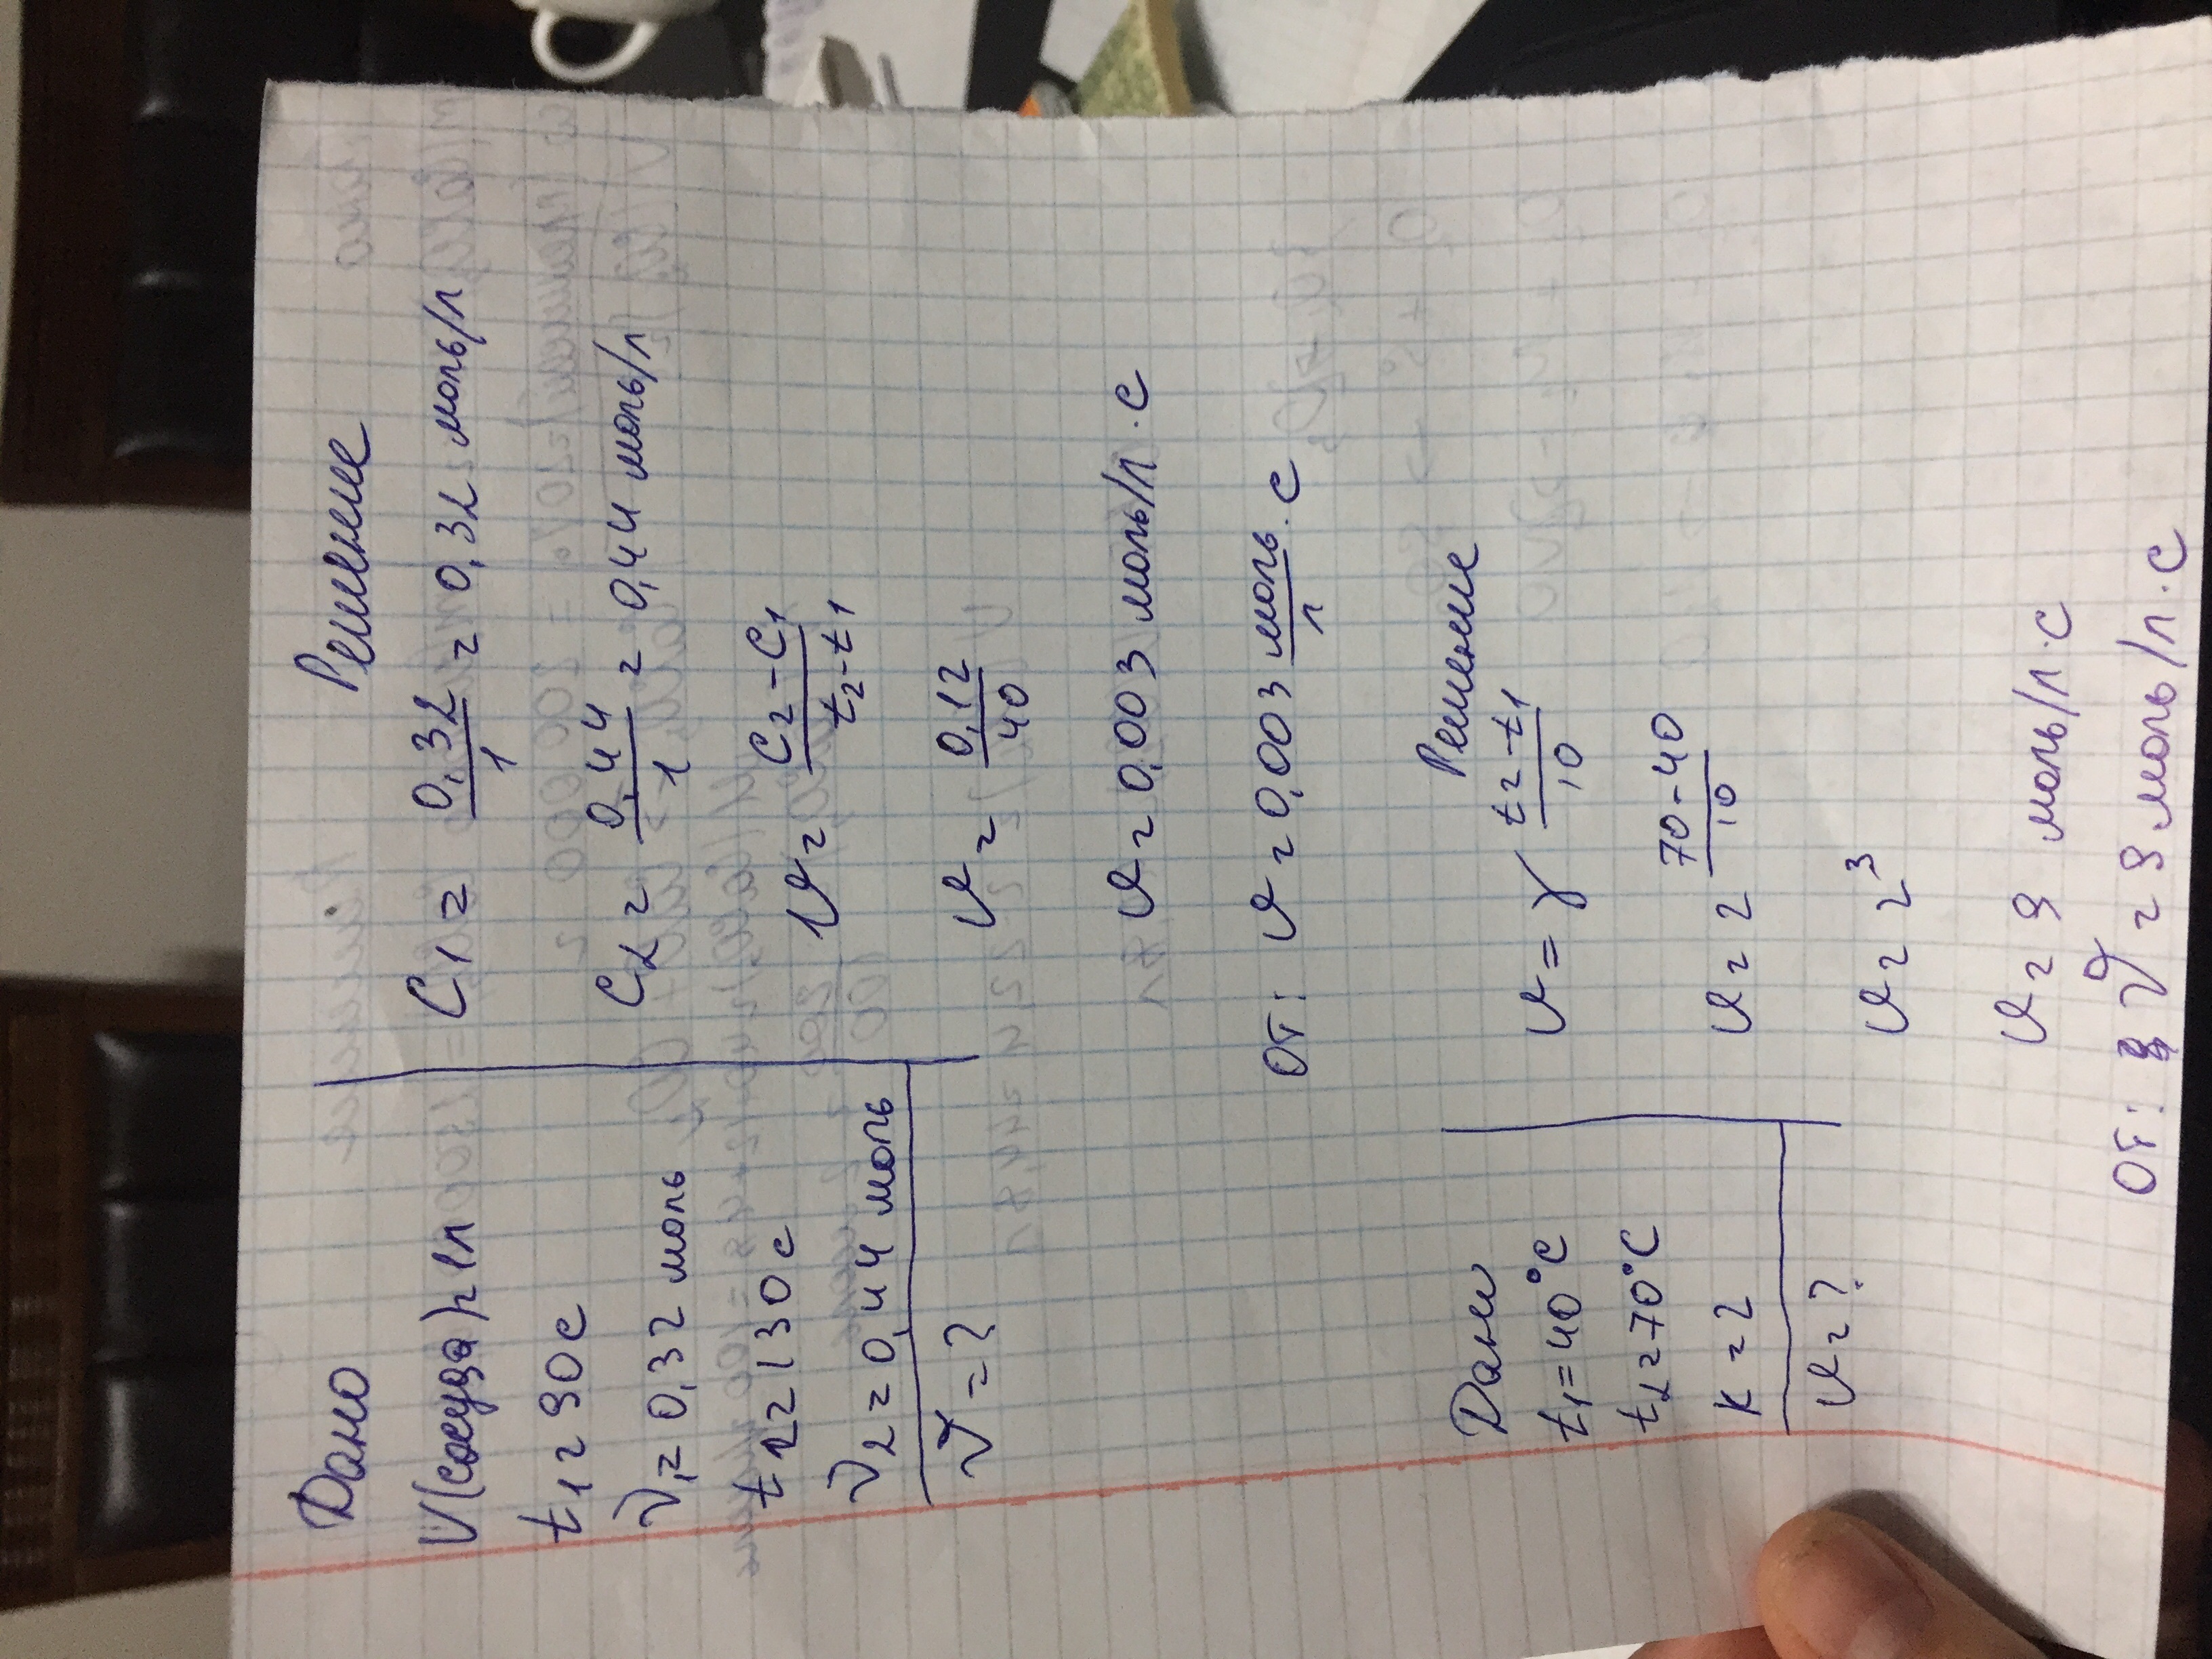 Дано
V(сосуда)=1л
t₁=90с
ν₁=0,32 моль
t₂=130с
ν₂=0,44 моль
ν=?
Решение
C₁=0,32/1=0,32 моль/л
C₂=0,44/1=0,44 моль/л
υ=(C₂-C₁)/(t₂-t₁)
υ=0,12/40
υ=0,003 моль/л·с
От: υ=0,003 моль/л·с
Дано
t₁=40°С
t₂=70°С
к=2
υ=?
Решение
υ=γ^((t₂-t₁)/10)
υ=2^((70-40)/10)
υ=2³
υ=9 моль/л·с
От: υ=9 моль/л·с